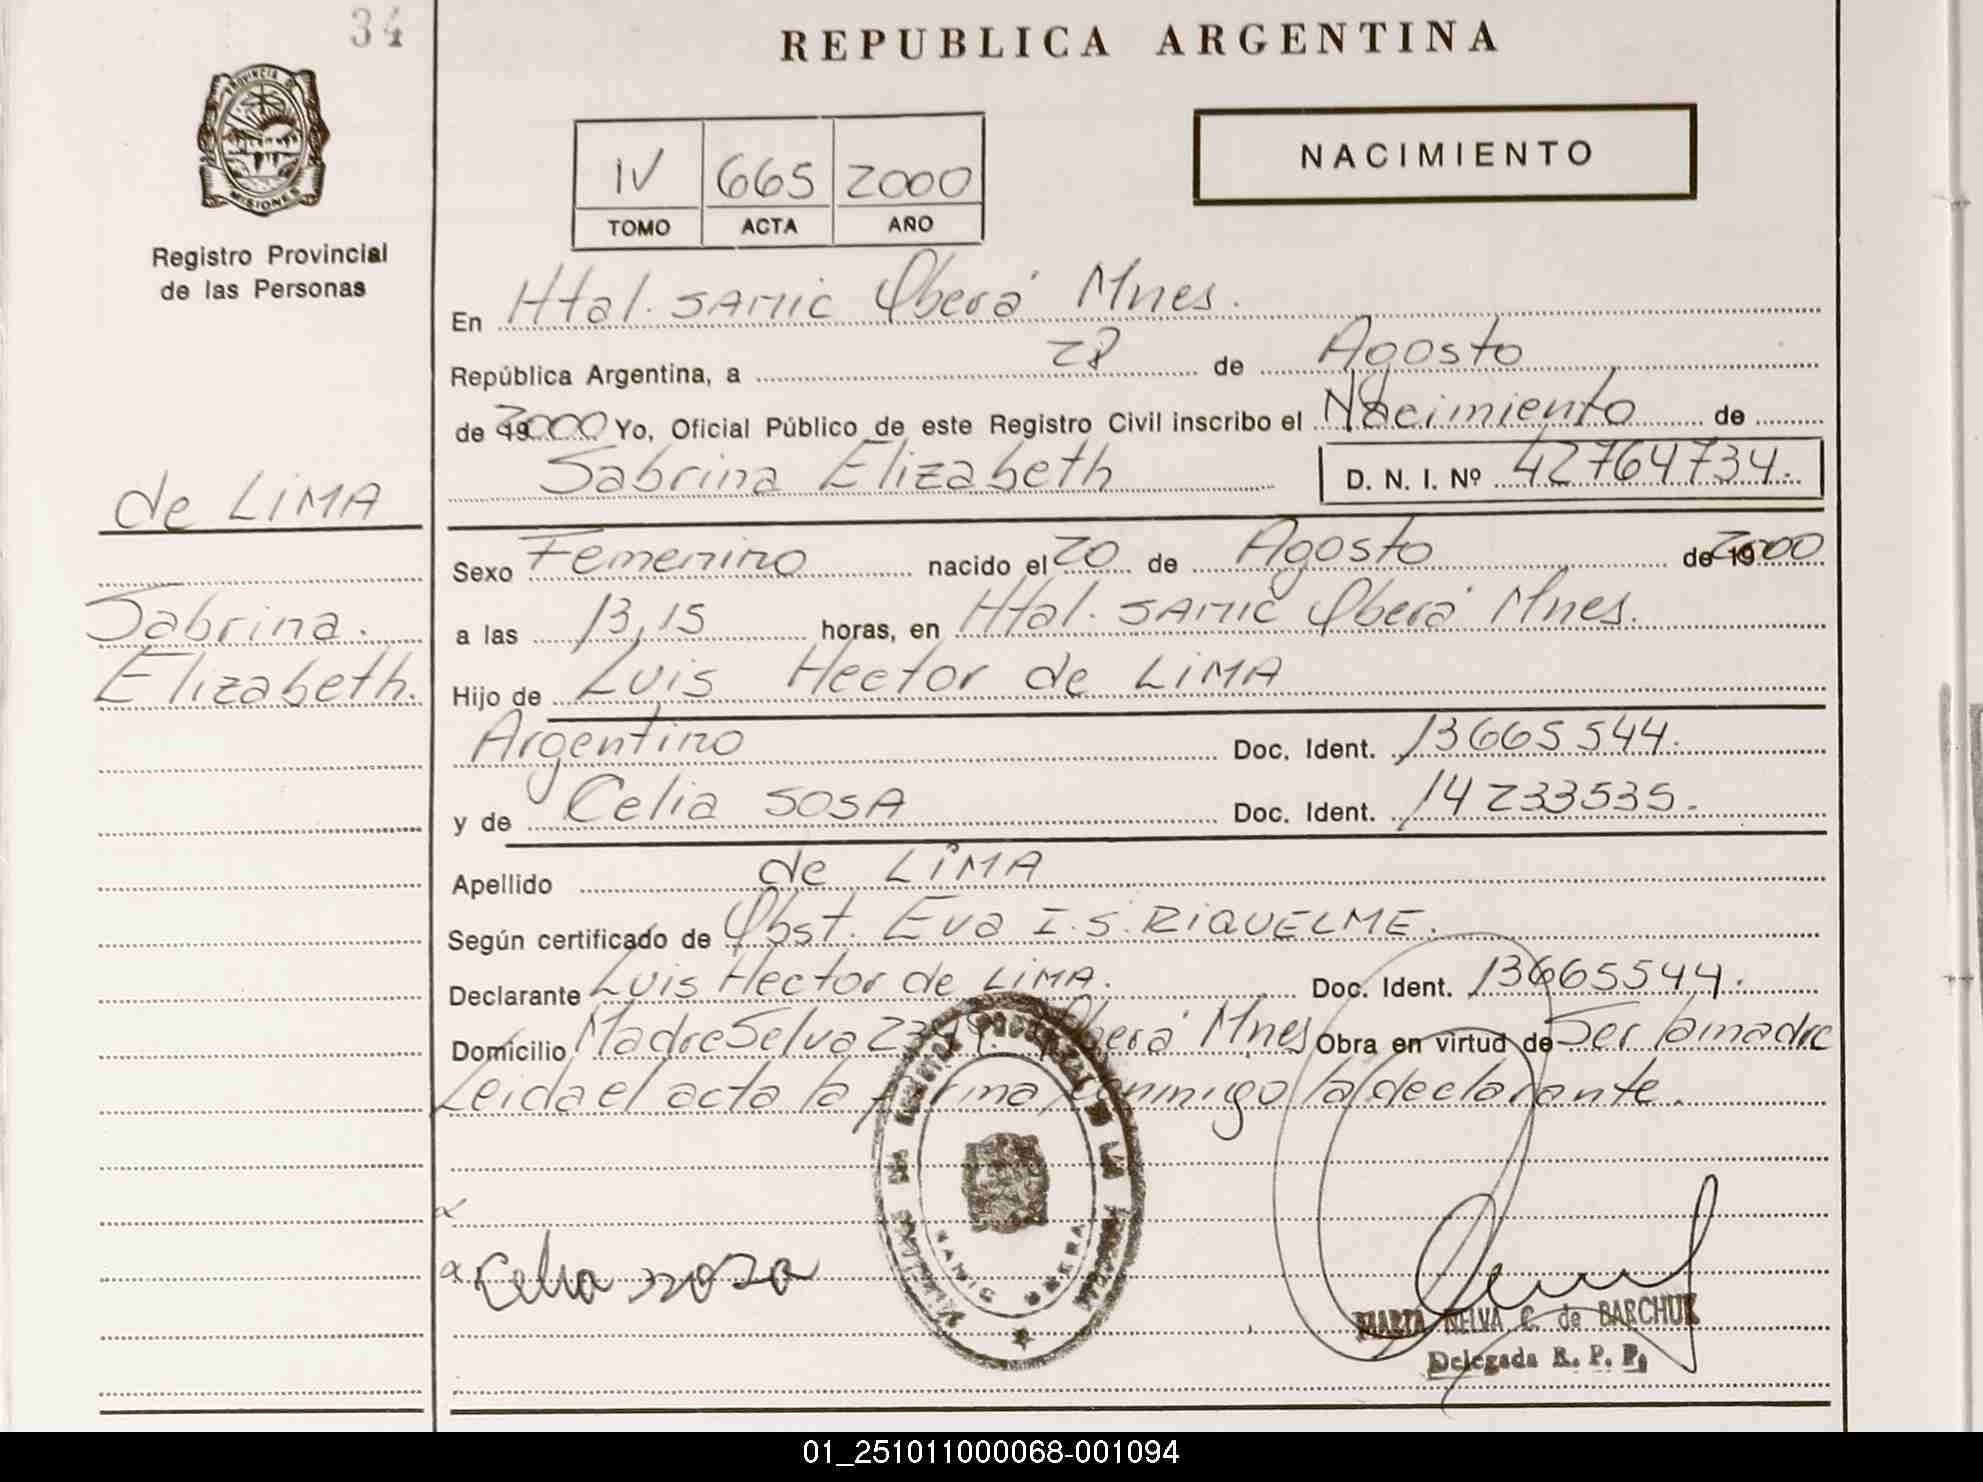 34
REPUBLICA ARGENTINA
PROVINCIA DE
MISIONES
Registro Provincial
de las Personas
IV 665 2000
TOMO ACTA AÑO
NACIMIENTO
En Htal. SAMIC Oberá Mnes.
República Argentina, a 28 de Agosto
de 19 2000 Yo, Oficial Público de este Registro Civil inscribo el Nacimiento de
Sabrina Elizabeth D. N. I. Nº 42764734.
de LiMA
Sexo Femenino nacido el 20 de Agosto de 19 2000
Sabrina.
a las 13,15 horas, en Htal. SAMIC Oberá Mnes.
Elizabeth.
Hijo de Luis Hector de LiMA
Argentino Doc. Ident. 13665544.
y de Celia SOSA Doc. Ident. 14233535.
Apellido de LiMA
Según certificado de Obst. Eva I.S. RiQUELME.
Declarante Luis Hector de LiMA. Doc. Ident. 13665544.
Domicilio Madre Selva Oberá Mnes Obra en virtud de Ser la madre
Leida el acta la firma conmigo la declarante.
SAMIC OBERA
Celia
MARTA NELVA C. de BARCHUK
Delegada R. P. P.
01_251011000068-001094